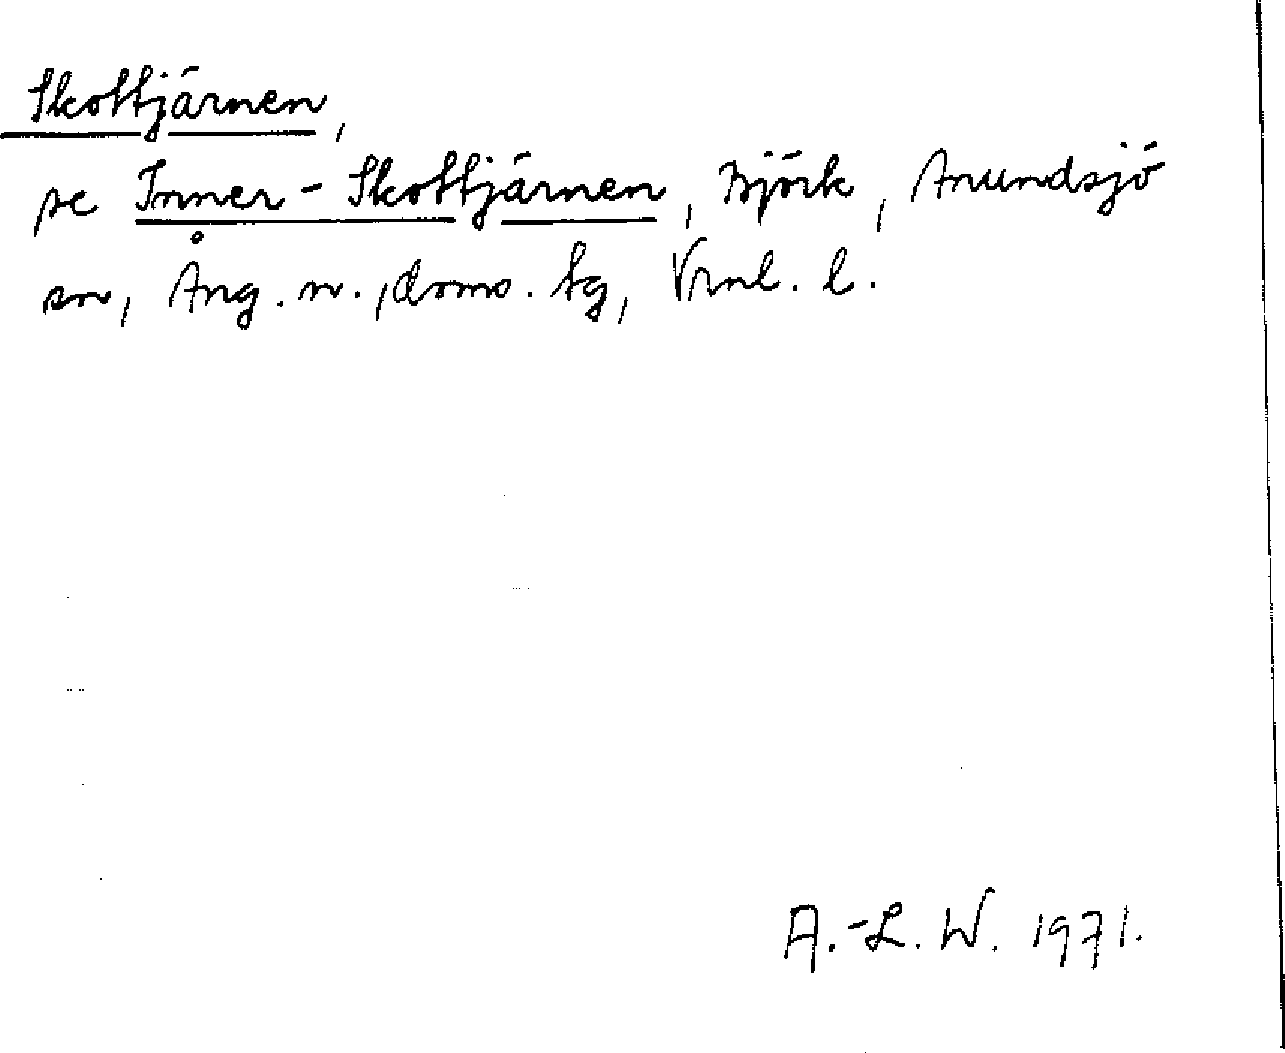 Skottjärnen,
se Inner-Skottjärnen, Björk, Anundsjö
sn, Ång. n., doms. tg, Vrnl. l.
A.-L. W. 1971.